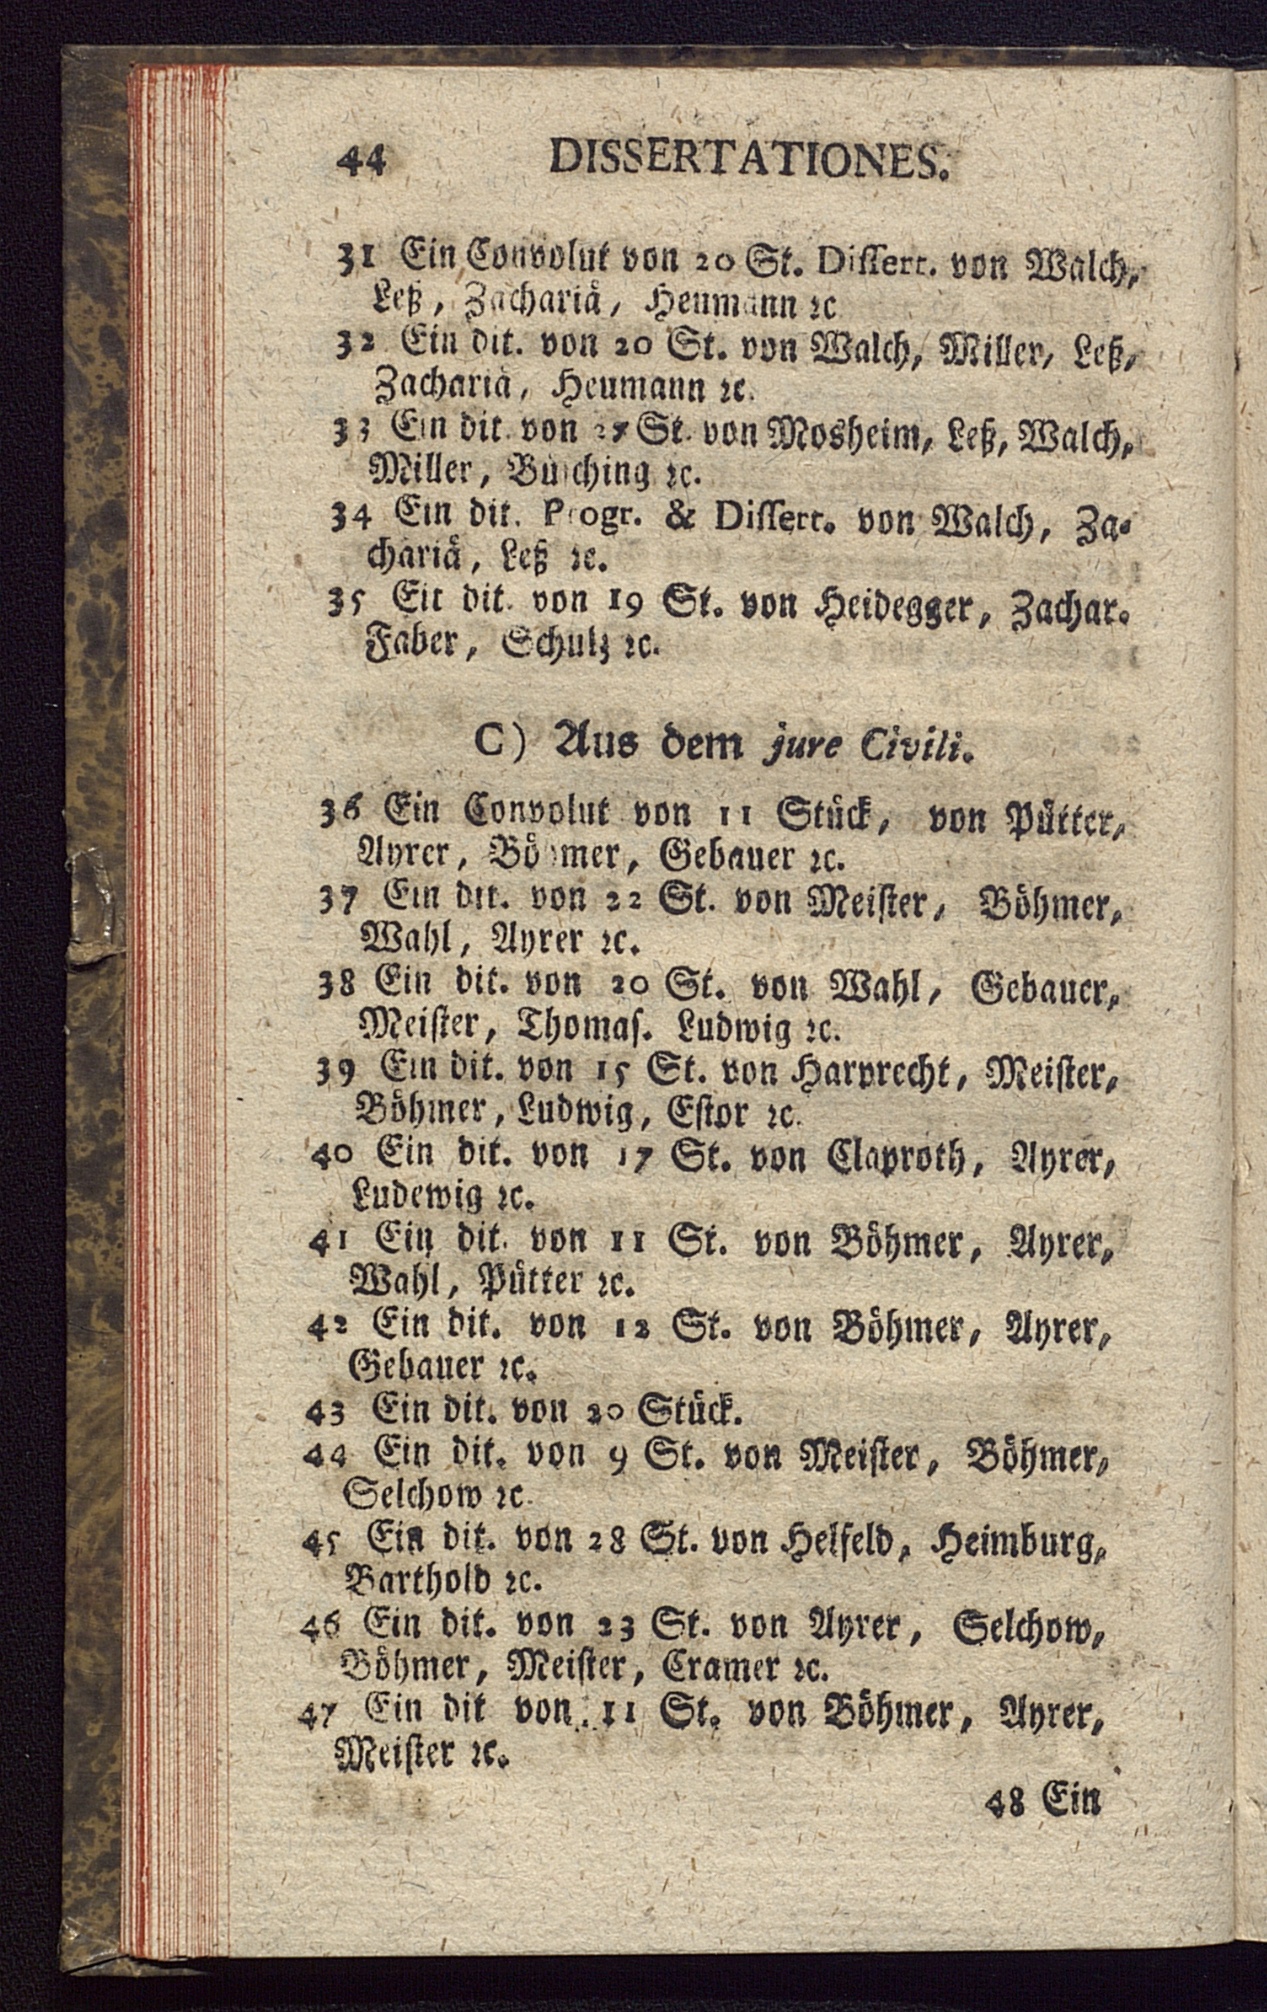 44 DISSERTATIONES.
31 Ein Convolut von 20 St. Dissert. von Walch,
Leß, Zachariä, Heumann ꝛc
32 Ein dit. von 20 St. von Walch, Miller, Leß,
Zachariä, Heumann ꝛc.
33 Ein dit. von 27 St. von Mosheim, Leß, Walch,
Miller, Büsching ꝛc.
34 Ein dit. Progr. & Dissert. von Walch, Za-
chariä, Leß ꝛc.
35 Eit dit. von 19 St. von Heidegger, Zachar.
Faber, Schulz ꝛc.
C) Aus dem jure Civili.
36 Ein Convolut von 11 Stück, von Pütter,
Ayrer, Böhmer, Gebauer ꝛc.
37 Ein dit. von 22 St. von Meister, Böhmer,
Wahl, Ayrer ꝛc.
38 Ein dit. von 20 St. von Wahl, Gebauer,
Meister, Thomas. Ludwig ꝛc.
39 Ein dit. von 15 St. von Harprecht, Meister,
Böhmer, Ludwig, Estor ꝛc.
40 Ein dit. von 17 St. von Claproth, Ayrer,
Ludewig ꝛc.
41 Ein dit. von 11 St. von Böhmer, Ayrer,
Wahl, Pütter ꝛc.
42 Ein dit. von 12 St. von Böhmer, Ayrer,
Gebauer ꝛc.
43 Ein dit. von 20 Stück.
44 Ein dit. von 9 St. von Meister, Böhmer,
Selchow ꝛc.
45 Ein dit. von 28 St. von Helfeld, Heimburg,
Barthold ꝛc.
46 Ein dit. von 23 St. von Ayrer, Selchow,
Böhmer, Meister, Cramer ꝛc.
47 Ein dit von 11 St. von Böhmer, Ayrer,
Meister ꝛc.
48 Ein